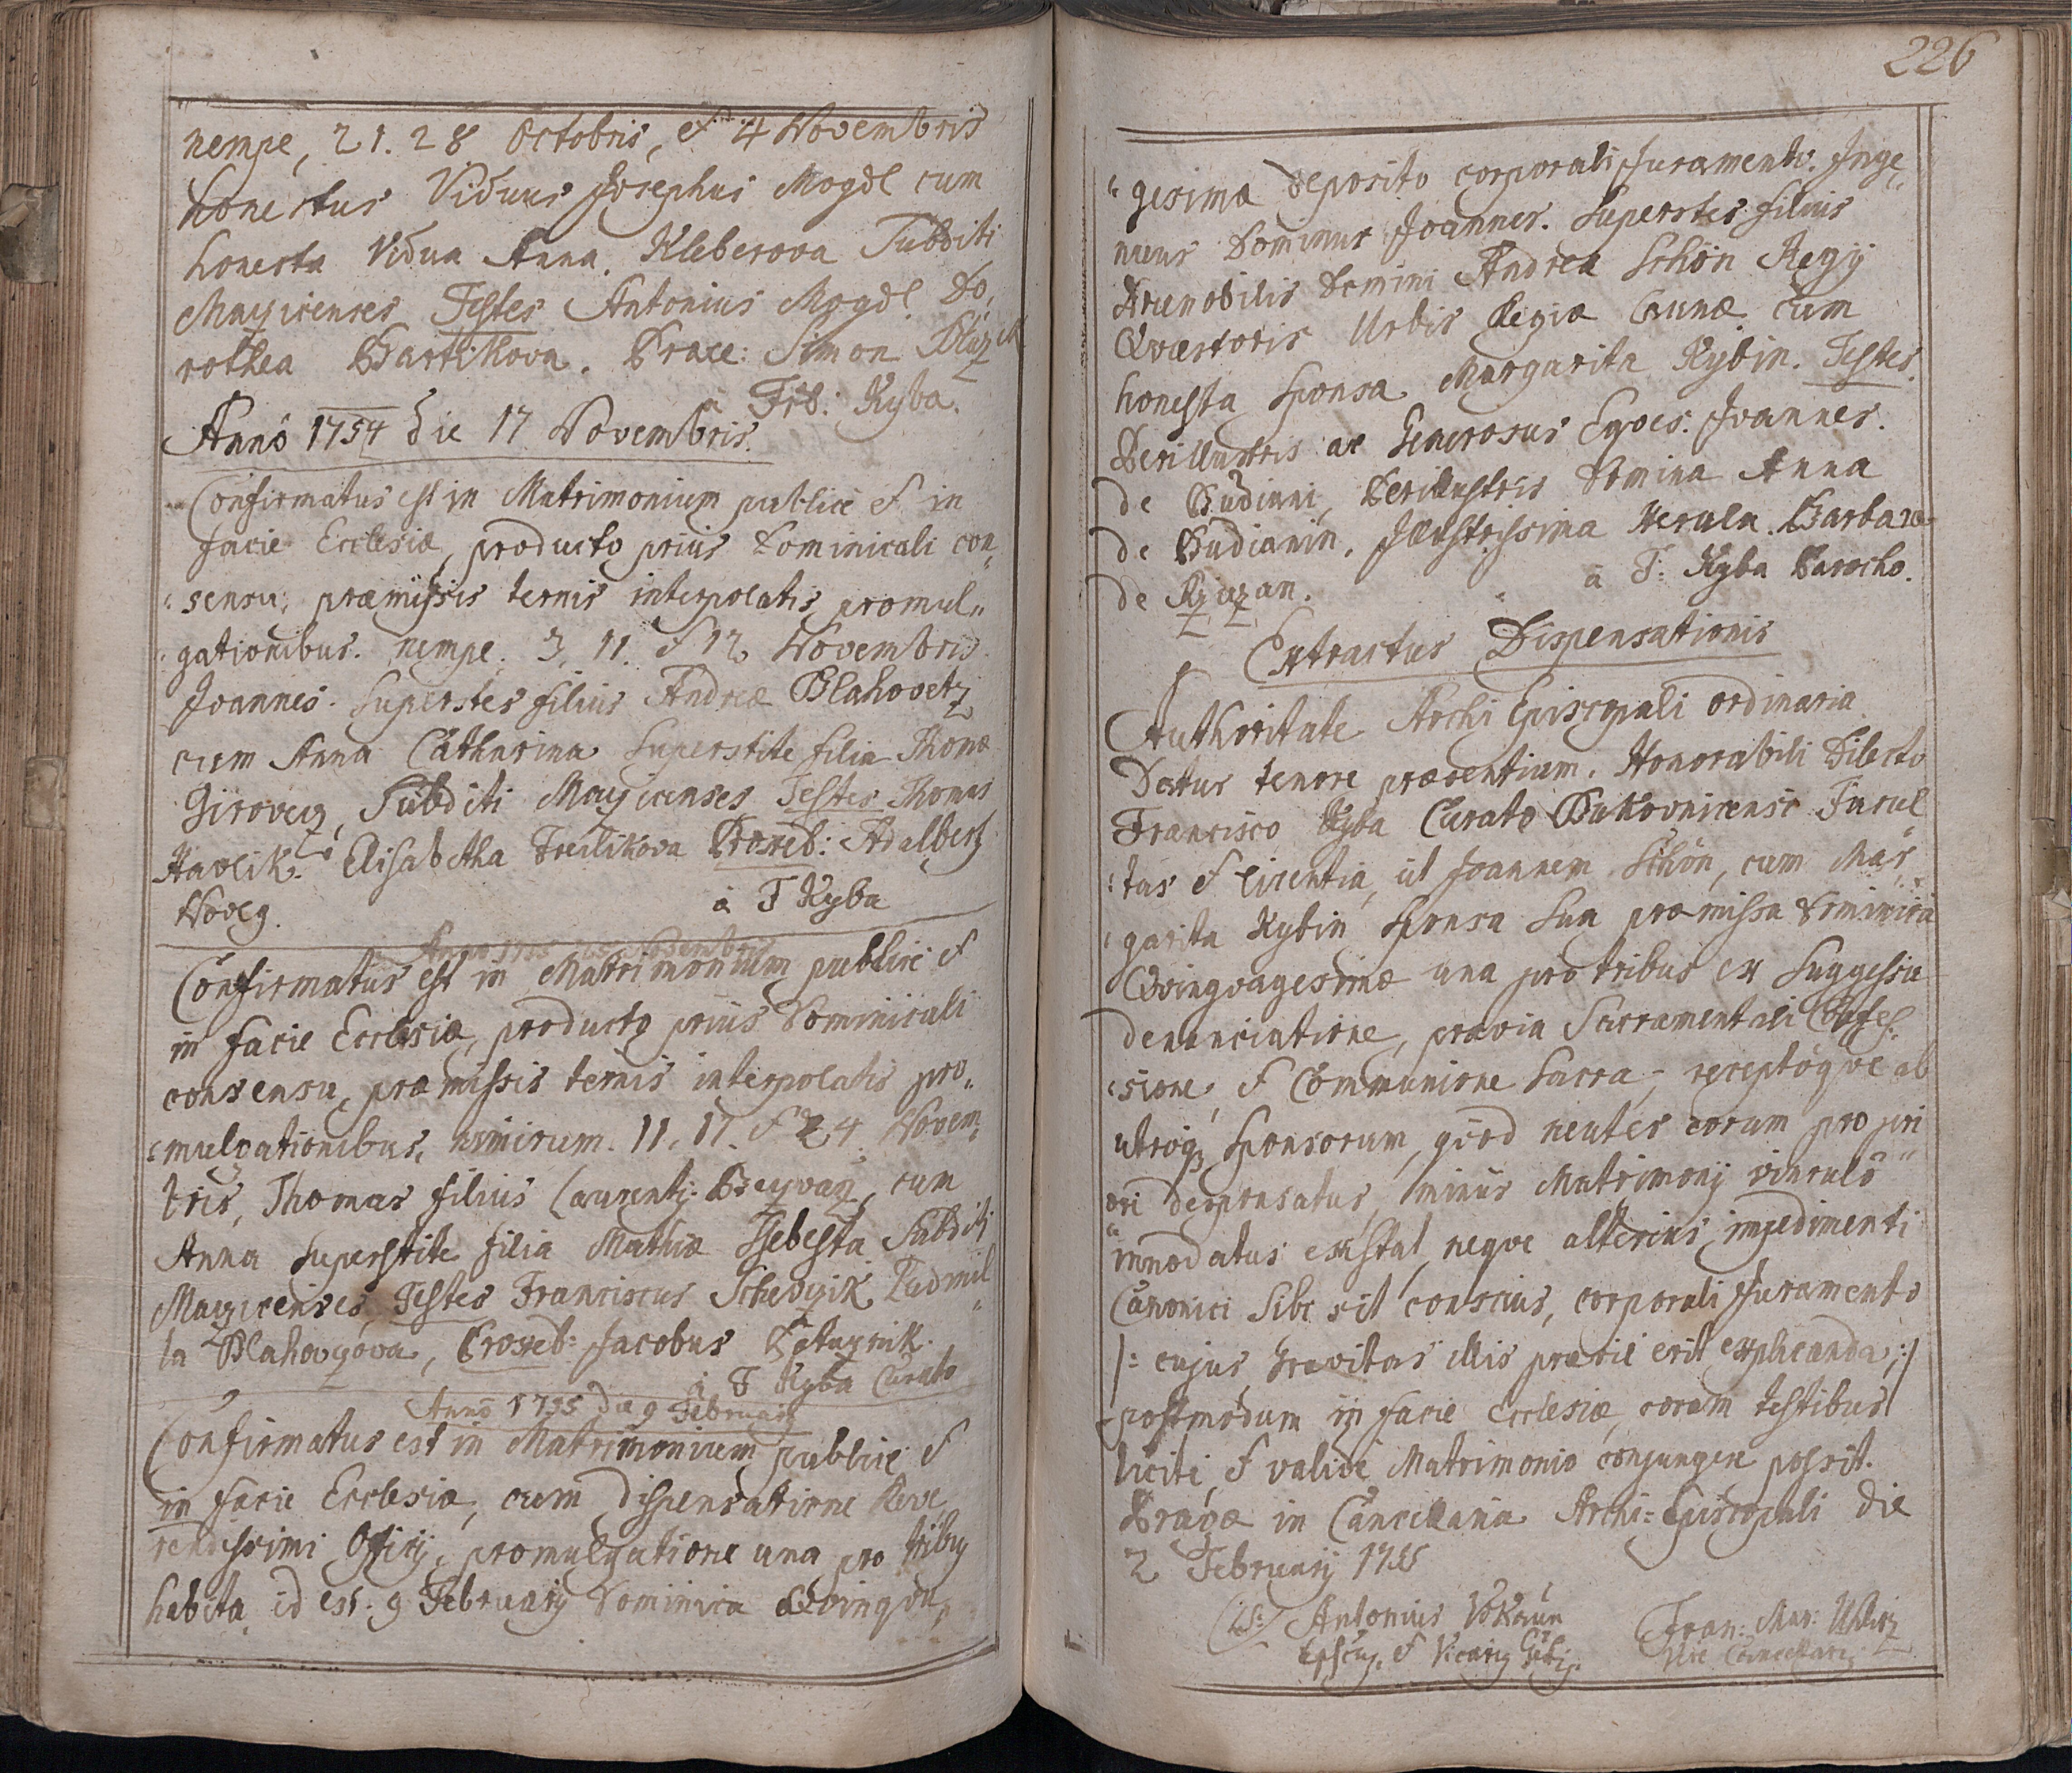 nempe, 21. 28 Octobris, et 4 Novembris
honestus Viduus Josephus Mogdl cum
honesta Vidua Anna Kleberova Subditi
Mayicenses Testes Antonius Mogdl. Do,
rothea Bartikova. Prace: Simon Blazek
a Frd: Kyba.
Annô 1754 die 17 Novembris.
Confirmatus est in Matrimonium publice et in
facie Ecclesiæ, producto prius Dominicali con„
„sensu, præmissis ternis interpolatis promul„
gationibus. nempe. 3, 11. et 17 Novembris
Joannes. Superstes filius Andreæ Blahovetz
cum Anna Catharina Superstite filia Thomæ
Girovez, Subditi Mayicenses Testes Thomas
Havlik. Elisabetha Proxeb: Adalbertz
Noveg. à F Kyba
Confirmatus est in Matrimonium publice et
in facie Ecclesiæ, producto prius Dominicali
consensu, præmissis ternis interpolatis pro„
„mulgationibus, nimirum. 11. 17. et 24 Novem„
bris, Thomas filius Laurentij cum
Anna Superstite filia Mathiæ Ssebesta Subditi
Mayicenses, Testes Franciscus Schevzik Ludmil„
la Blahovzova, Proxeb: Jacobus
à F Kyba Curato
Annô 1755 die 9 Februarij
Confirmatus est in Matrimonium publice et
in facie Ecclesiæ, cum dispensatione Reve„
rendissimi Officij, promulgatione una pro tribus
habita id est. 9 Februarij Dominica Qvinqva„
226
„gesimæ deposito corporali Juramento. Inge„
nuus Dominus Joannes. Superstes filius
Prænobilis Domini Andreæ Schön Regij
Qvæstoris Urbis Regiæ Launæ cum
honesta Sponsa Margarita Kybin. Testes.
Perillustris ac Generosus Eqves. Joannes.
de Budinni, Perillustris Domina Anna
de Budianin, Illustrissima Herula Barbara
de à F: Kyba Parocho.
Extractus Dispensationis
Authoritate Archi Episcopali ordinaria
Datur tenore præsentium. Honorabili Dilecto
Francisco Kyba Curato Bukovnicensi Facul„
„tas et licentia, ut Joannem Schön, cum Mar„
„garita Kybin Sponsa Sua præmissa Dominica
Qvinqvagesimæ una pro tribus ex Suggestu
denunciatione, prævia Sacramentali Confes„
„sione, et Communione Sacra, receptoqve ab
utroqz Sponsorum, qvod neuter eorum pro pri„
ori desponsatus, minus Matrimonij vinculô
innodatus existat, neqve alterius impedimenti
Canonici Sibi sit conscius, corporali Juramento
/: cujus gravitas illis præviè erit explicanda, :/
postmodum in facie Ecclesiæ, coram testibus
licitè, et validè Matrimonio conjungere possit.
Pragæ in Cancellaria Archi-Episcopali die
2 Februarij 1755
(L.S:) Antonius Vokaun Fran: Mar:
Epscus, et Vicarius Vice Cancellari